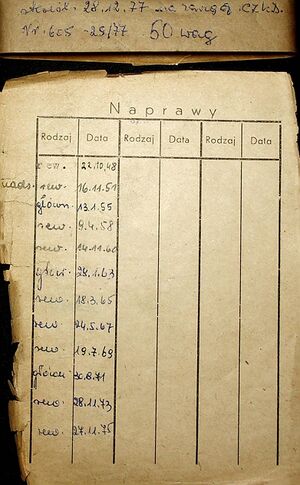 28.12.77 na
Nr. 605-25/77 50 wag
Naprawy
Rodzaj Data Rodzaj Data Rodzaj Data
rew. 22.10.48
nads. rew. 16.11.51
główn. 13.1.55
rew. 9.4.58
rew. 24.11.60
główn. 28.1.63
rew. 18.3.65
rew 24.5.67
rew. 19.7.69
główn 30.8.71
rew. 28.11.73
rew. 27.11.75